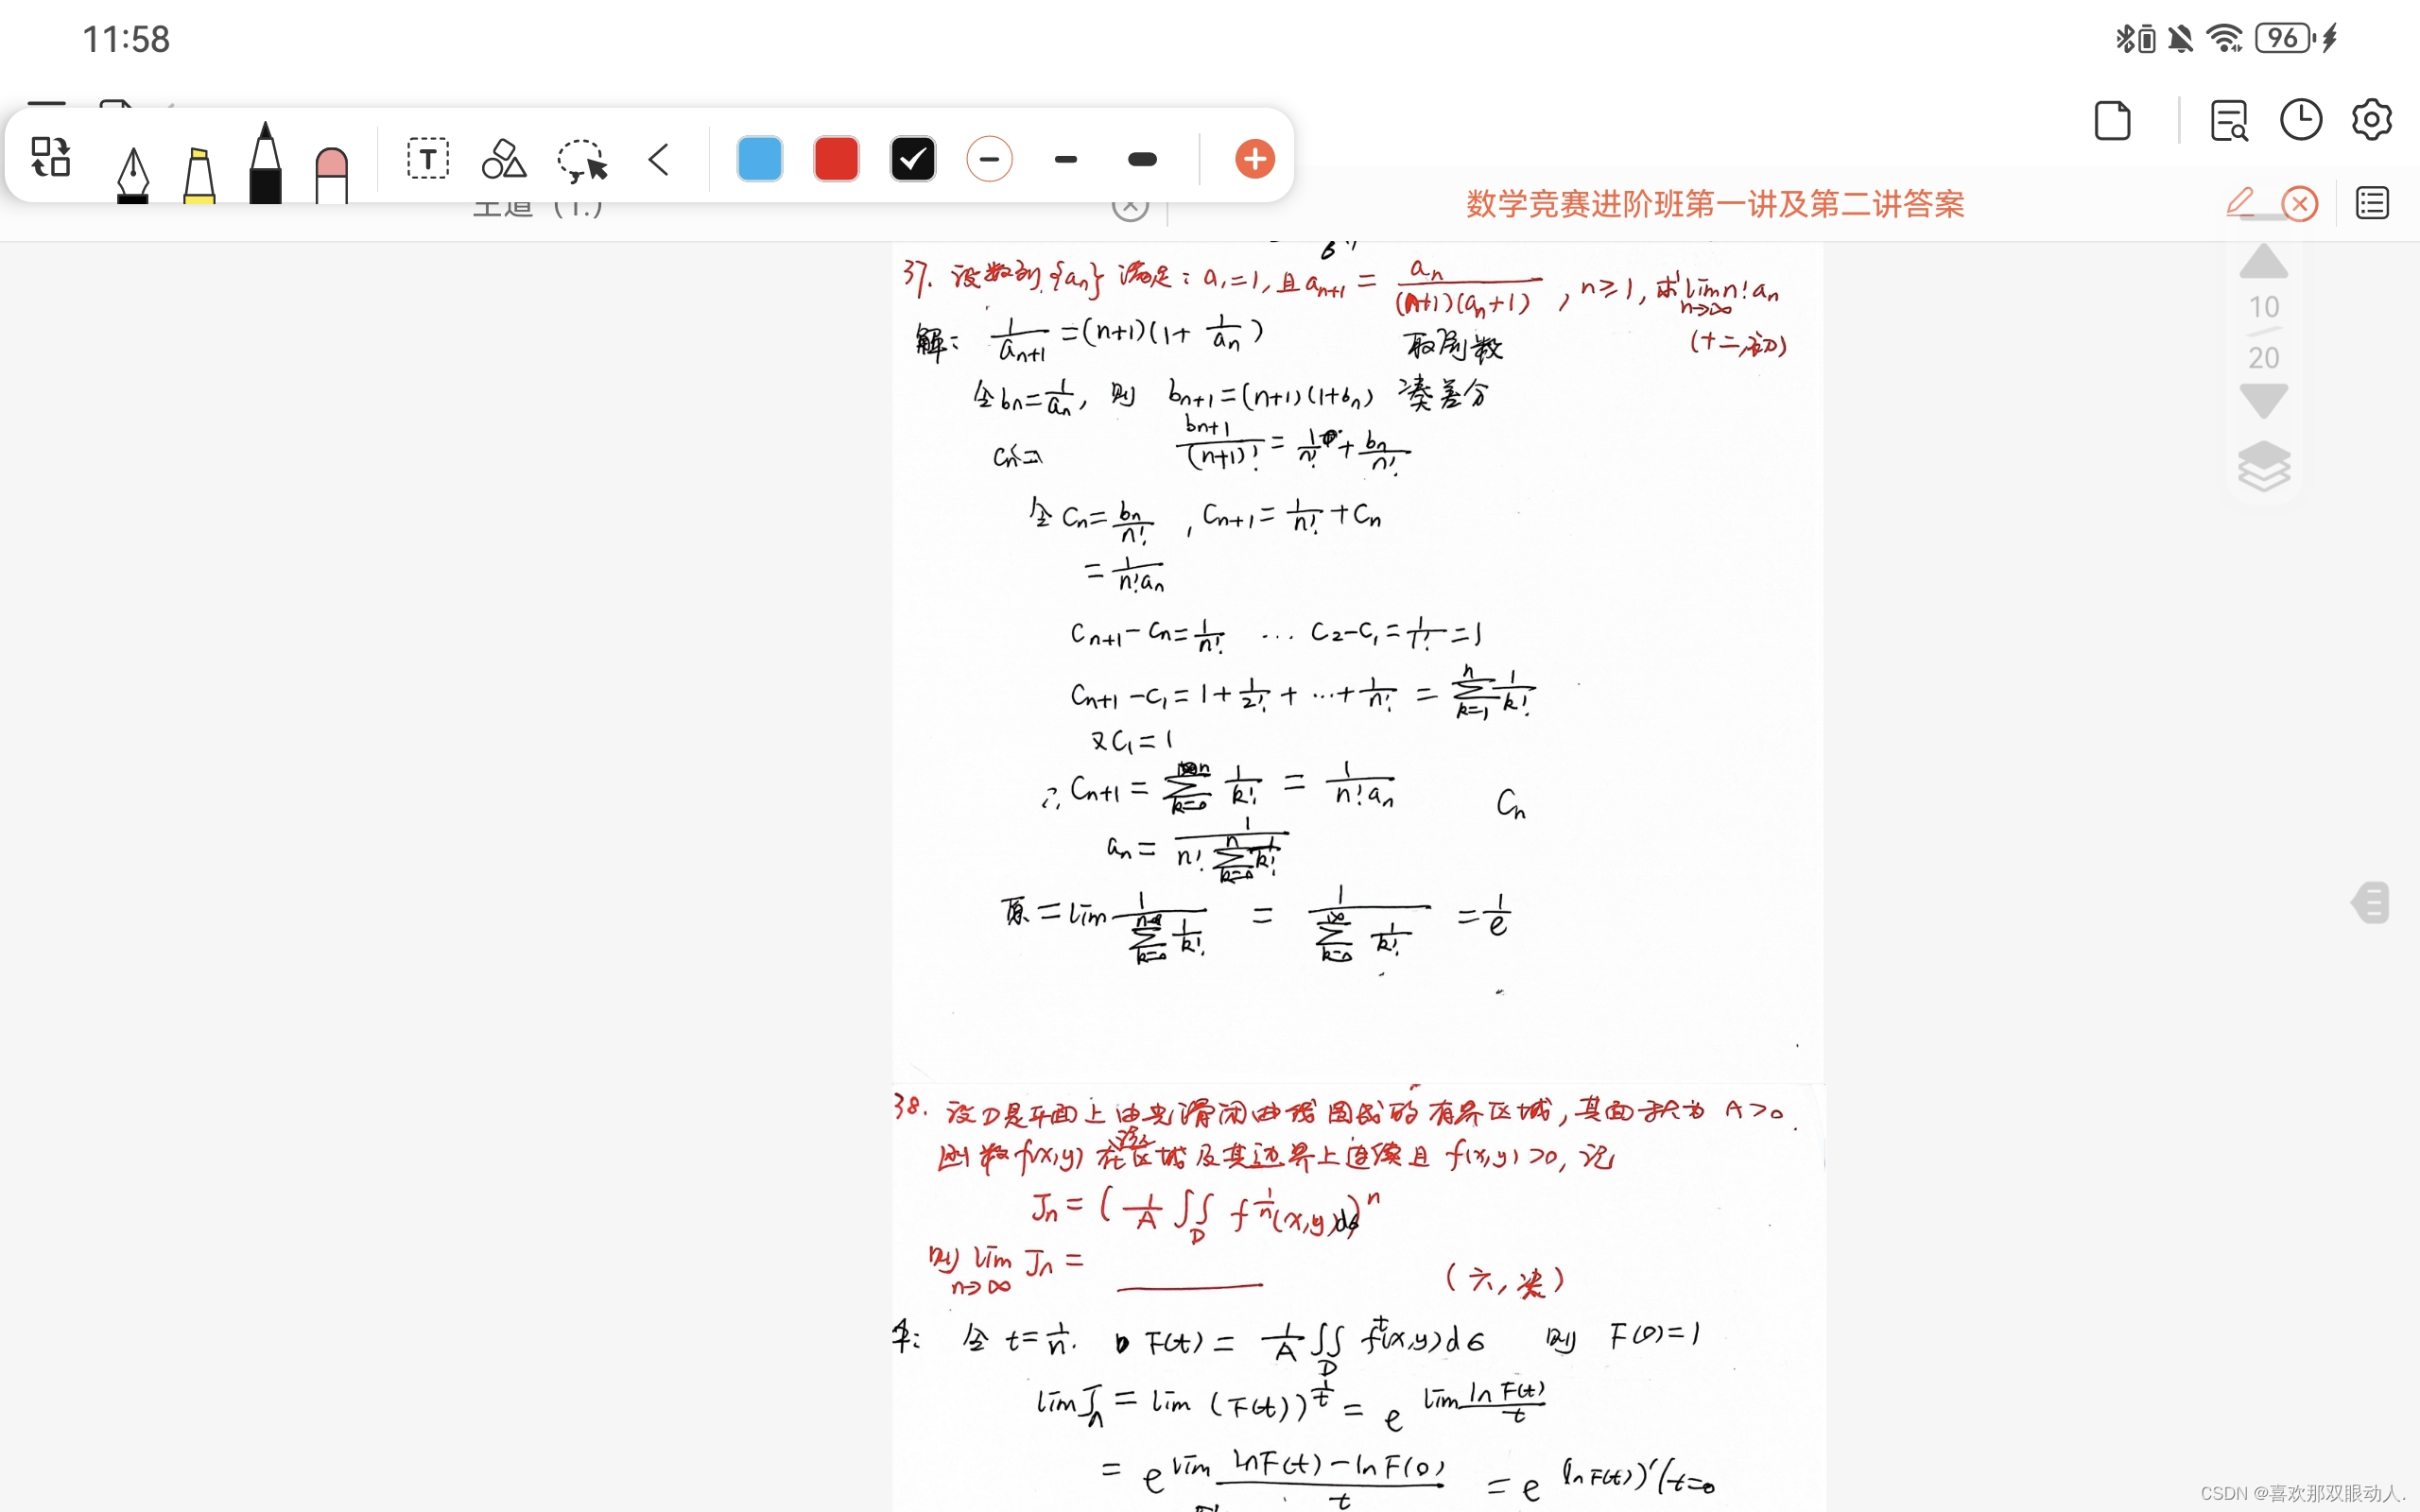 11:58
96
T
王道 (1.)
数学竞赛进阶班第一讲及第二讲答案
10
20
37. 设数列{aₙ}满足: a₁=1, 且aₙ₊₁ = aₙ/((n+1)(aₙ+1)), n≥1, 求lim n→∞ n!aₙ
(十二,初)
解: 1/aₙ₊₁ =(n+1)(1+ 1/aₙ) 取倒数
令bₙ=1/aₙ, 则 bₙ₊₁=(n+1)(1+bₙ) 凑差分
Cₙ= bₙ₊₁/(n+1)! = 1/n! + bₙ/n!
令 Cₙ= bₙ/n! , Cₙ₊₁= 1/n! +Cₙ
= 1/n!aₙ
Cₙ₊₁-Cₙ=1/n! ... C₂-C₁=1/1!=1
Cₙ₊₁-C₁=1+1/2!+...+1/n! = ∑ₖ₌₁ⁿ 1/k!
又C₁=1
∴ Cₙ₊₁ = ∑ₖ₌₀ⁿ 1/k! = 1/n!aₙ Cₙ
aₙ= 1/(n! ∑ₖ₌₀ⁿ 1/k!)
原=lim 1/(∑ₖ₌₀ 1/k!) = 1/(∑ₖ₌₀^∞ 1/k!) = 1/e
38. 设D是平面上由光滑闭曲线围成的有界区域, 其面积为 A>0.
函数f(x,y)在该区域及其边界上连续且 f(x,y)>0, 记
Jₙ = ( 1/A ∬_D f^(1/n)(x,y)dσ )ⁿ
则 lim n→∞ Jₙ = ______ (六,决)
令 t=1/n. F(t)= 1/A ∬_D fᵗ(x,y)dσ 则 F(0)=1
lim Jₙ = lim (F(t))^(1/t) = e^(lim lnF(t)/t)
= e^(lim (lnF(t)-lnF(0))/t) = e^((lnF(t))'|t=0
CSDN @喜欢那双眼动人.